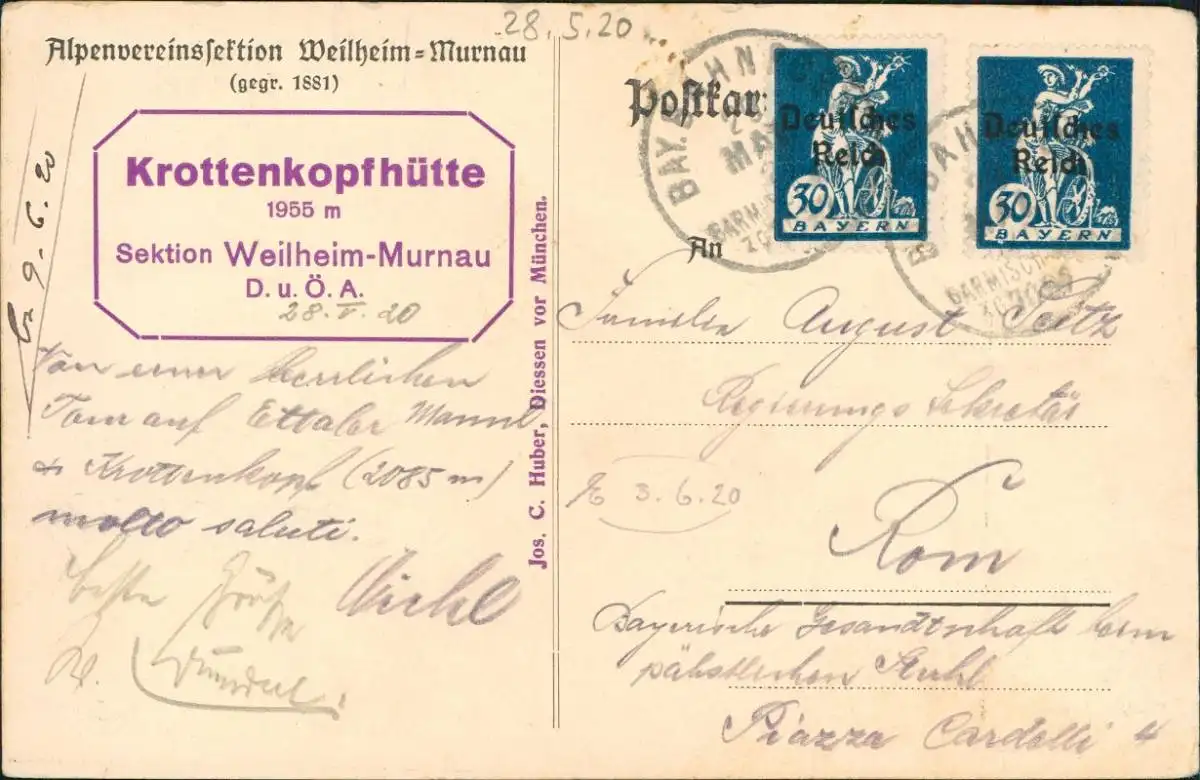 28.5.20
Alpenvereinssektion Weilheim-Murnau
(gegr. 1881)
Krottenkopfhütte
1955 m
Sektion Weilheim-Murnau
D. u. Ö. A.
28.V.20
Von einer herrlichen
Tour auf Ettaler Mannl
& Krottenkopf (2085 m)
molto saluti.
beste Grüße
9.6.20
Jos. C. Huber, Diessen vor München.
Postkar
Deutsches
Reich
30
BAYERN
Deutsches
Reich
30
BAYERN
BAY. BAHNPO
GARMISCH
An
Familie August Seitz
Regierungs Sekretär
3.6.20
Rom
Bayerische Gesandtschaft beim
päbstlichen Stuhl
Piazza Cardelli 4